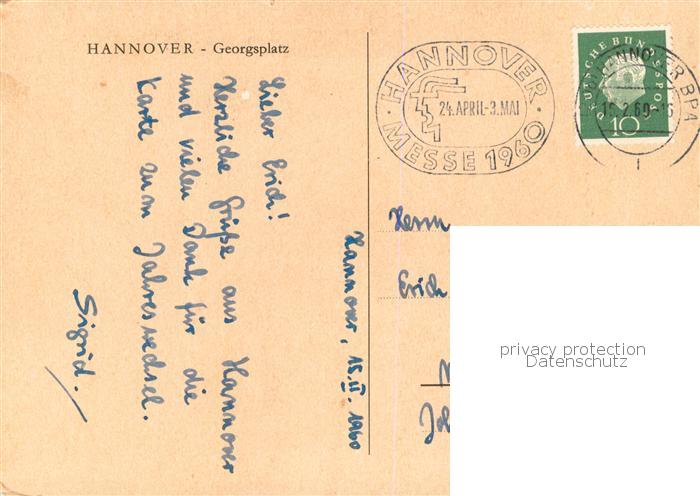 HANNOVER - Georgsplatz
Hannover, 15.II.1960
Lieber Erich!
Herzliche Grüße aus Hannover
und vielen Dank für die
Karte zum Jahreswechsel.
Sigrid.
HANNOVER
24. APRIL-3. MAI
MESSE 1960
DEUTSCHE BUNDESPOST
10
HANNOVER BPA
Herrn
Erich
privacy protection
Datenschutz